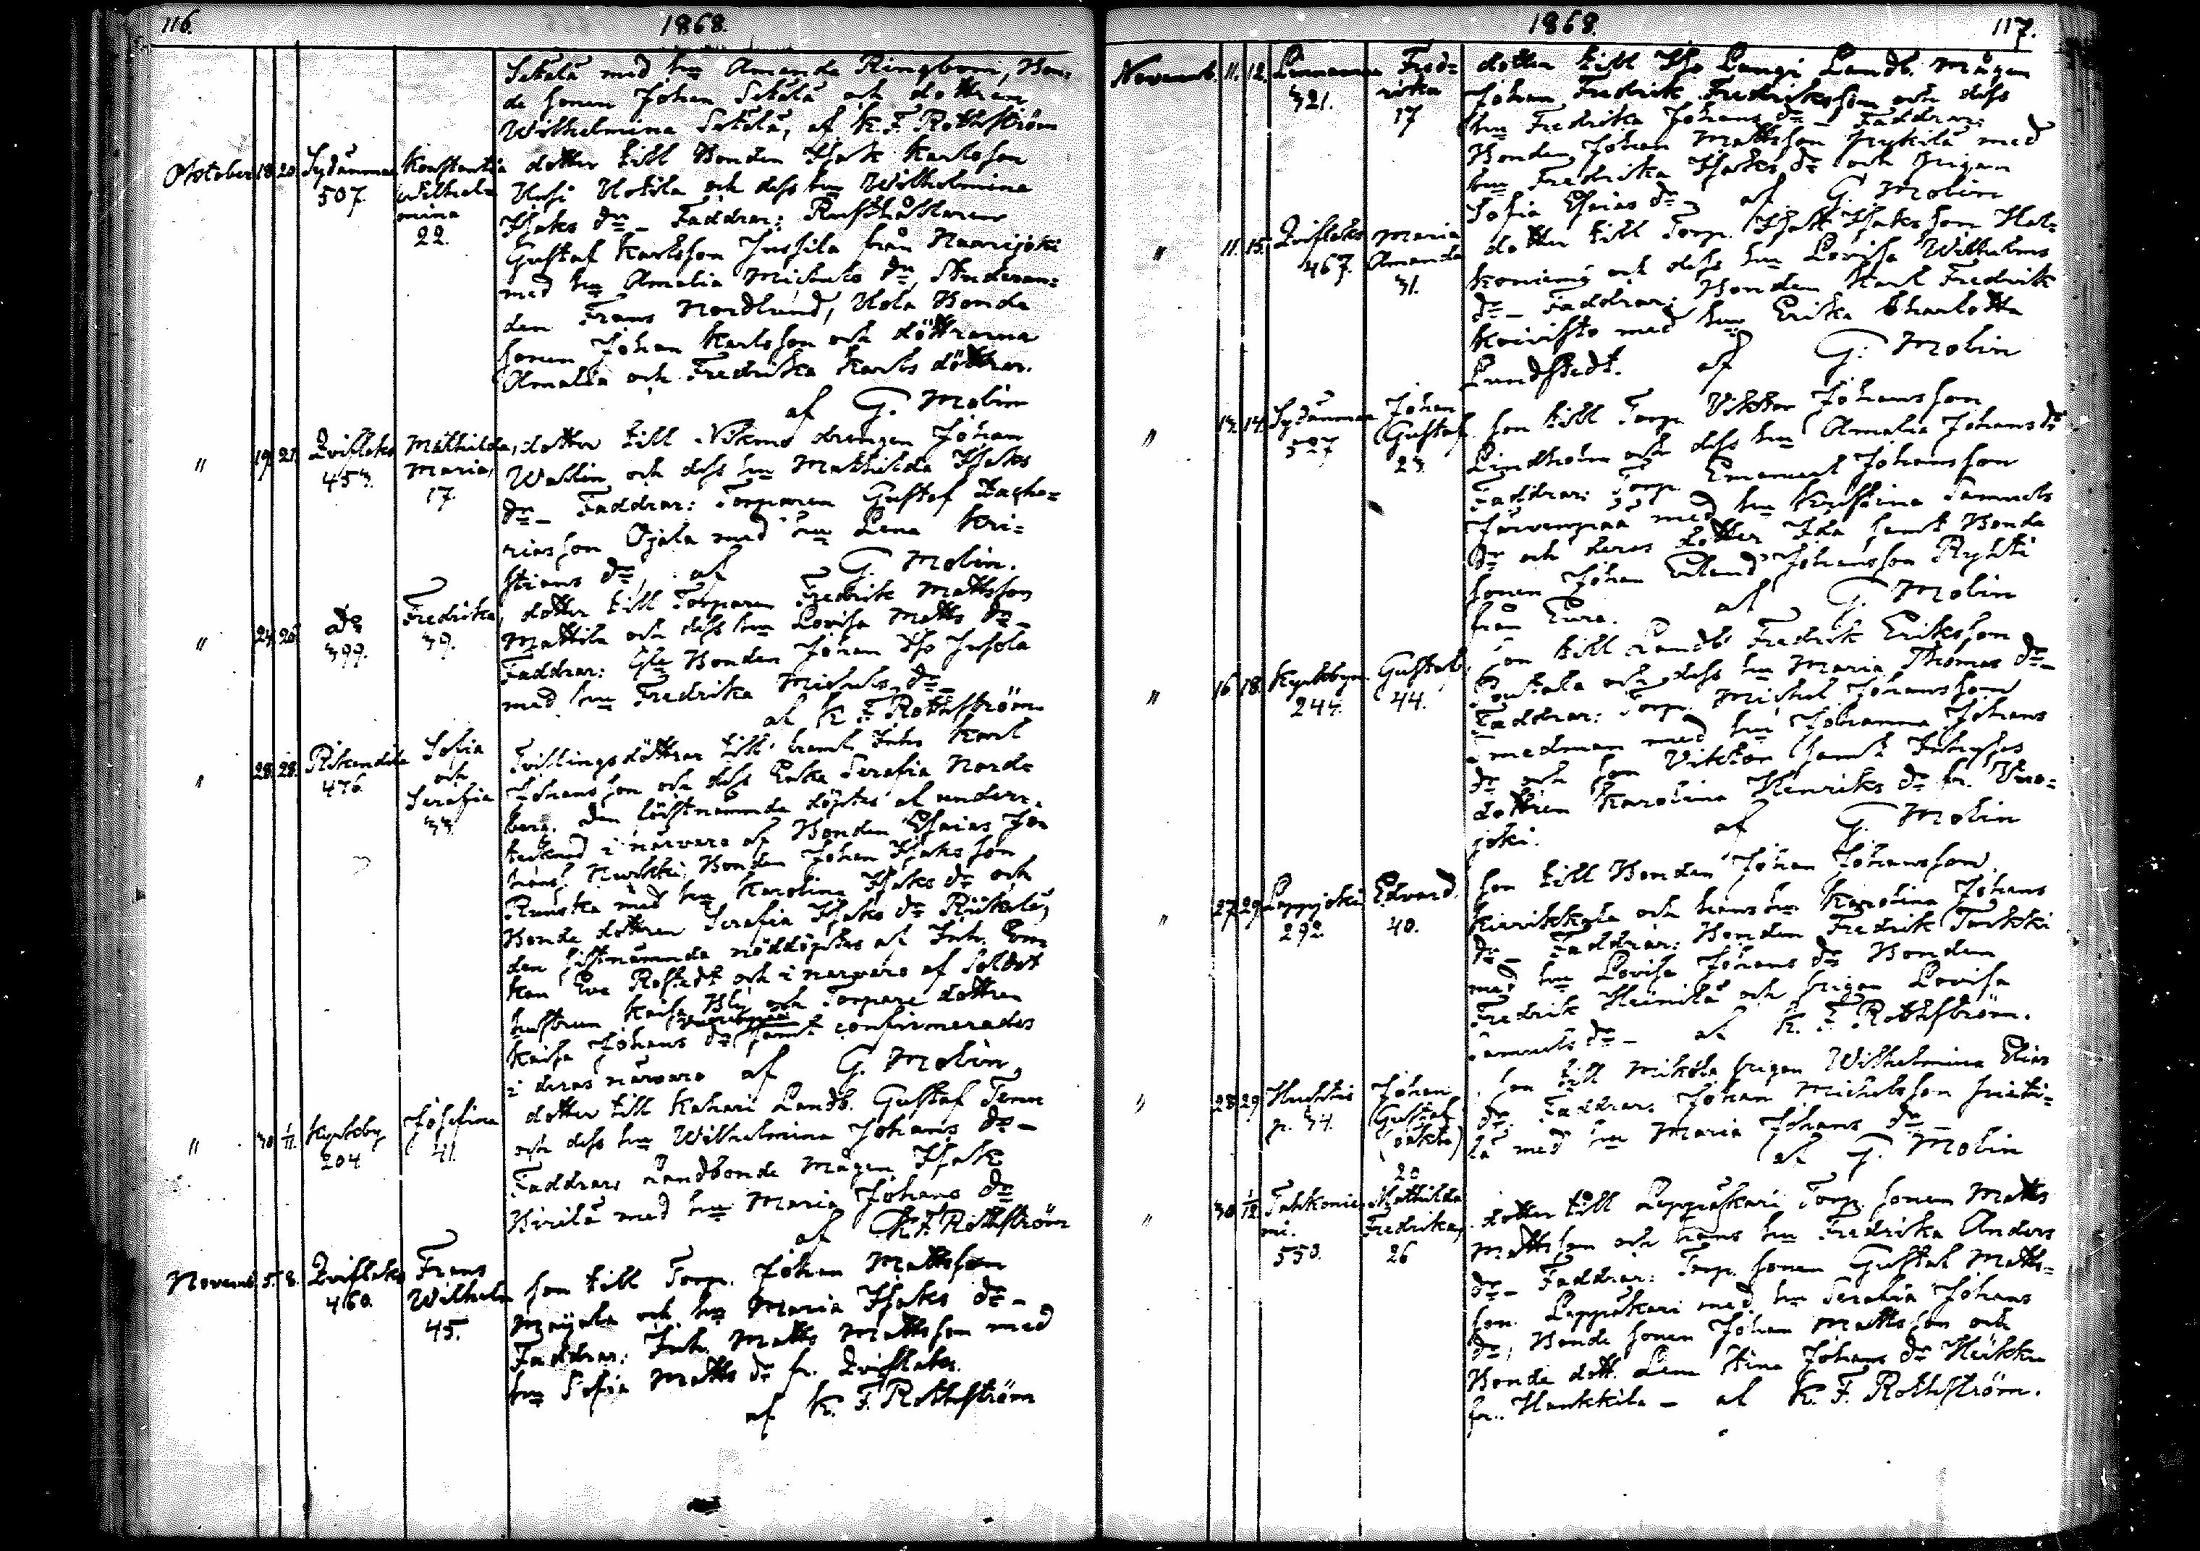 116.
1868.
Säkälä med hu Amanda Ringbom, Bon-
de sonen Johan Säkälä och dottren
Wilhelmina Säkälä, af K. F. Rothström
October 18. 20. Sydänmaa Konstantia dotter till Bonden Isak Karlsson
507. Wilhelmina Uusi Uotila och dess hu Wilhelmina
22. Isaks dr – Faddrar: Rusthållaren
Gustaf Karlsson Jussila från Naarijoki
med hu Amalia Michels dr, Studeran-
den Frans Nordlund, Uola Bonde
sonen Johan Karlsson och döttrarna
Amalia och Fredrika Karls döttrar.
af G. Molin
" 19. 21. Qvistaks Mathilda dotter till Nikmo drengen Johan
453. Maria, Wallin och dess hu Mathilda Isaks
17. dr – Faddrar: Torparen Gustaf Zacha-
riasson Ojala med hu Lena Kri-
stians dr, af G. Molin.
" 24. 26. Do Fredrika, dotter till Torparen Fredrik Mattsson
399. 39. Mattila och dess hu Lovisa Matts dr –
Faddrar: Bonden Johan Iso
med hu Fredrika Michels dr –
af K. F. Rothström
" 28. 28. Sofia Tvillingsdöttrar till Inhs Karl
476 och Johansson och dess Enka Serafia Nord-
Serafia berg. Den förstnämnda döptes af under-
33. tecknad i närvaro af Bonden Esaias
Bonden Johan Isaksson
med hu Karolina Isaks dr och
Bonde dottren Serafia Isaks dr
den sistnämnda nöddöptes af Inh. En-
kan Eva och i närvaro af Soldat
hustrun Kaisa och Torpare dottren
Kaisa Johans dr samt confirmerades
i deras närvaro af G. Molin,
" 30. 1/11. Kyrkoby Josefina dotter till Kahari Landb. Gustaf
204 41. och dess hu Wilhelmina Johans dr –
Faddrar: Landbonde Mågen Isak
med hu Maria Johans dr
af K. F. Rothström
Novemb. 5. 8. Qvistaks Frans son till Torp. Johan Mattsson
460. Wilhelm och hu Maria Isaks dr –
45. Faddrar: Inh. Matts Mattsson med
hu Sofia Matts dr fr. Qvistaks.
af K. F. Rothström
1868.
117.
Novemb. 11. 12. Fred- dotter till Iso Langi Landb. Mågen
321. rika Johan Fredrik Fredriksson och dess
17 hu Fredrika Johans dr – Faddrar:
Bonden Johan Mattsson med
hu Fredrika Isaks dr och Pigan
Sofia Esaias dr – af G. Molin
" 11. 15. Qvistaks Maria dotter till Torp. Isak Isaksson Hal-
467. Amanda koniemi och dess hu Lovisa Wilhelms
31. dr – Faddrar: Bonden Karl Fredrik
Koivisto med hu Erika Charlotta
Lundstedt. af G. Molin
" 13. 14. Sydänmaa Johan son till Torp. Viktor Johansson
527 Gustaf Lindholm och dess hu Amalia Johans dr
23. Faddrar: Torp. Emanuel Johansson
Järvenpää med hu Kristina Samuels
dr och deras dotter Ida samt Bonde
sonen Johan Erland Johansson
från Eura. af G. Molin
" 16 18. Kyrkobyn Gustaf, son till Landb Fredrik Eriksson
244. 44. och dess hu Maria Thomas dr –
Faddrar: Torp. Michel Johansson
med hu Johanna Johans
dr och son Viktor samt
dottren Karolina Henriks dr fr.
joki. af G. Molin
" 27. 29. Lappijoki Edvard. son till Bonden Johan Johansson
292. 40. och hans hu Karolina Johans
dr – Faddrar: Bonden Fredrik Turkki
med hu Lovisa Johans dr Bonden
Fredrik Heinilä och pigan Lovisa
Samuels dr – af K. F. Rothström.
" 28. 29 Huhtis Johan son till Mikola pigan Wilhelmina Elias
p. 34. Gustaf dr. Faddrar: Johan Michelsson
(oäkta) lä med hu Maria Johans dr –
20 af G. Molin
" 30. 1/12. Mathilda dotter till Leppäskari Torp. sonen Matts
mi. Fredrika, Mattsson och hans hu Fredrika Anders
550. 26 dr – Faddrar: Torp. sonen Gustaf Matts-
son Leppäskari med hu Serafia Johans
dr, Bonde sonen Johan Mattsson och
Bonde dott. Lena Stina Johans dr Heikku
fr. Haukkila – af K. F. Rothström.